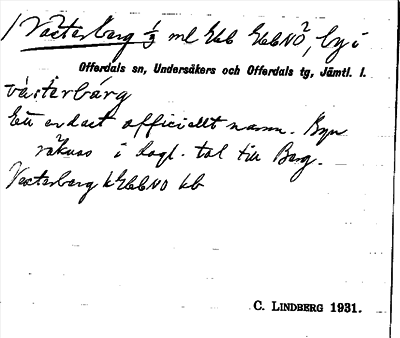 Västerberg 1/3 ml Ebb EbbNO², by i
Offerdals sn, Undersåkers och Offerdals tg, Jämtl. l.
västerbärg
Ett endast officiellt namn. Byn
räknas i dagl. tal till Berg.
Vesterberg
C. LINDBERG 1931.